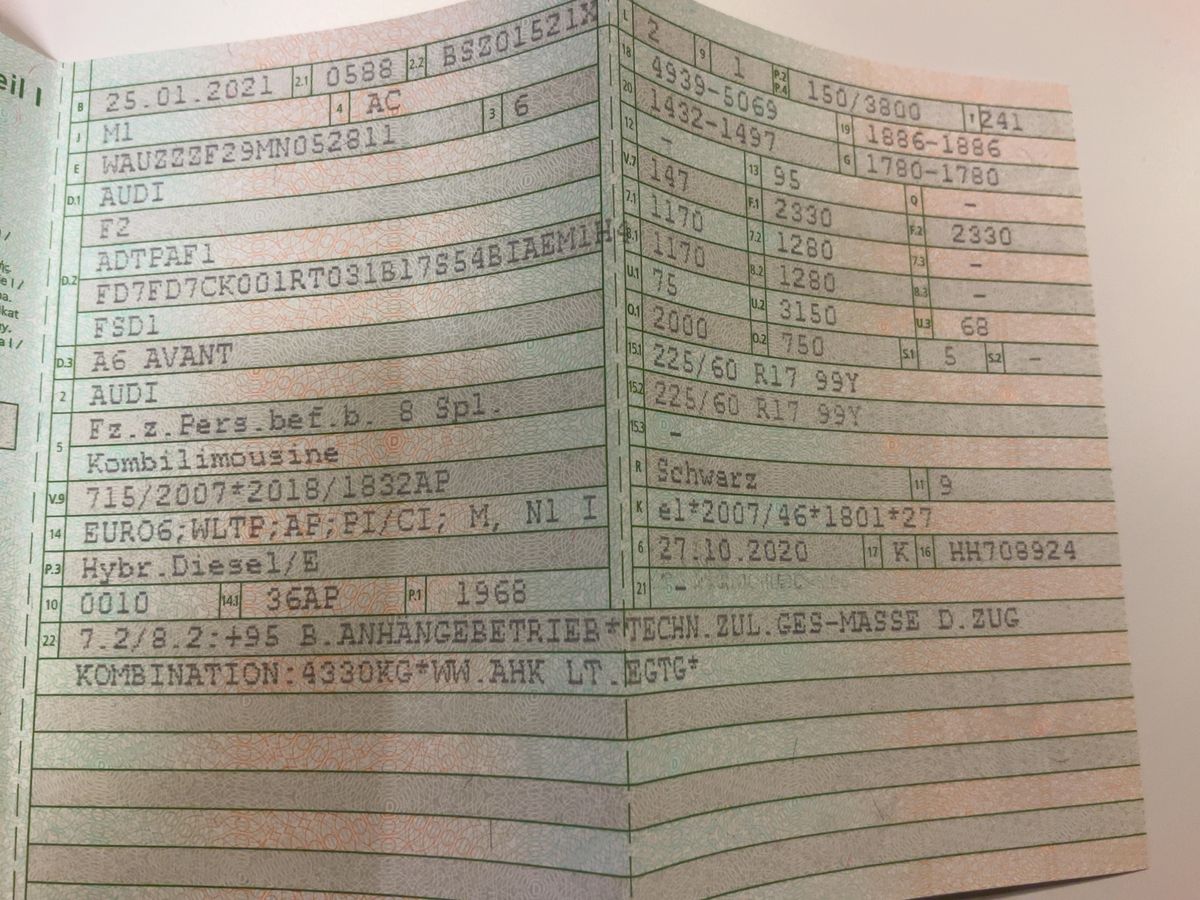 eil I
B 25.01.2021 2.1 0588 2.2 BSZ01521X
J M1 4 AC
E WAUZZZF29MN052811 3 6
D.1 AUDI
F2
D.2 ADTPAF1
FD7FD7CK001RT031B17S54BIAEM1H4
FSD1
D.3 A6 AVANT
2 AUDI
5 Fz.z.Pers.bef.b. 8 Spl.
Kombilimousine
V.9 715/2007*2018/1832AP
14 EURO6;WLTP;AP;PI/CI; M, N1 I
P.3 Hybr.Diesel/E
10 0010 14.1 36AP P.1 1968
L 2 9 1 P.2 P.4 150/3800 T 241
18 4939-5069 19 1886-1886
20 1432-1497 G 1780-1780
12 - 13 95 Q -
V.7 147 F.1 2330 F.2 2330
7.1 1170 7.2 1280 7.3 -
8.1 1170 8.2 1280 8.3 -
U.1 75 U.2 3150 U.3 68
O.1 2000 O.2 750 S.1 5 S.2 -
15.1 225/60 R17 99Y
15.2 225/60 R17 99Y
15.3 -
R Schwarz 11 9
K e1*2007/46*1801*27
6 27.10.2020 17 K 16 HH708924
21 -
22 7.2/8.2:+95 B.ANHÄNGEBETRIEB*TECHN.ZUL.GES-MASSE D.ZUG
KOMBINATION:4330KG*WW.AHK LT.EGTG*